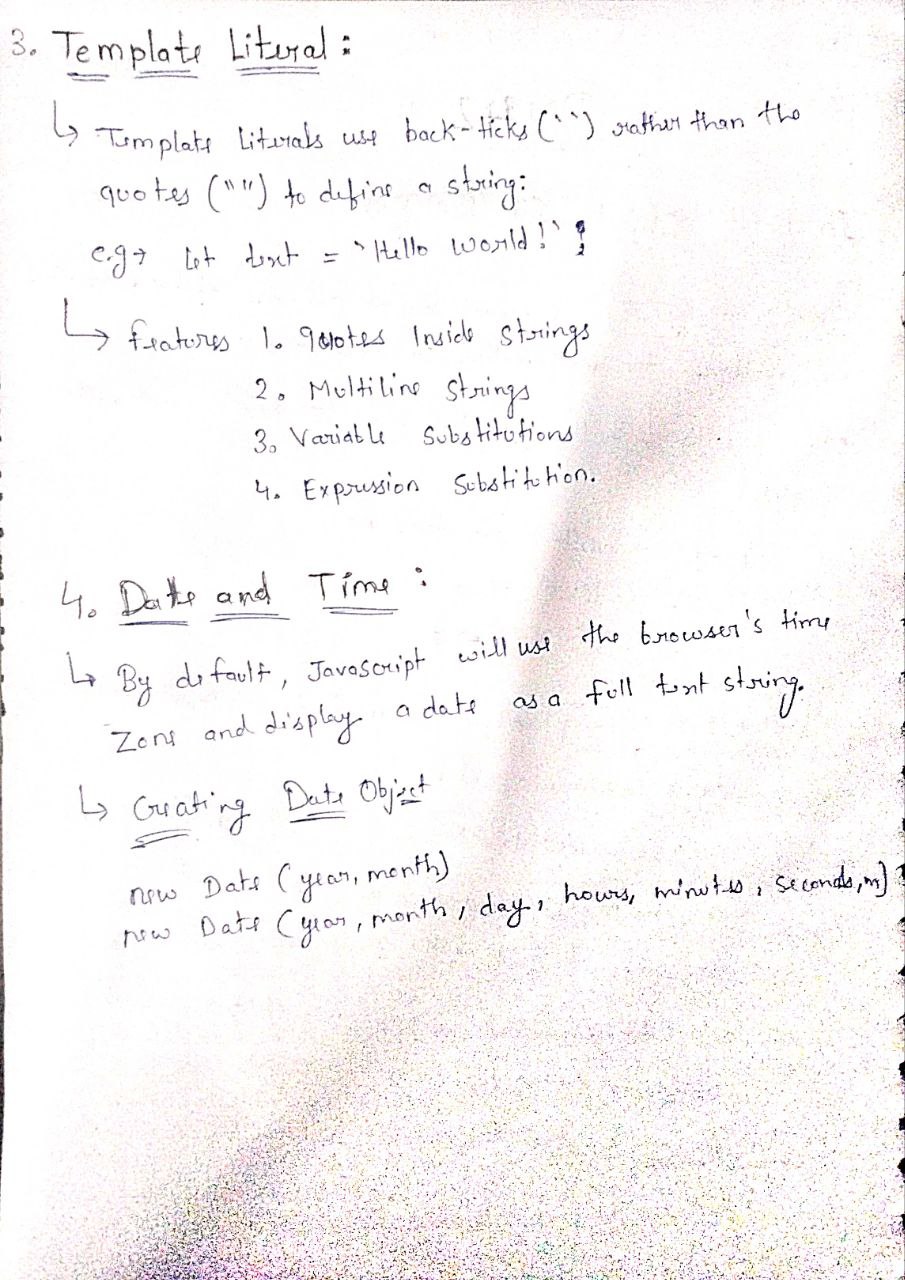 3. Template Literal :
↳ Template Literals use back-ticks (``) rather than the
quotes ("") to define a string:
e.g → let text = `Hello world!`;
↳ features 1. quotes Inside strings
2. Multiline strings
3. Variable Substitutions
4. Expression Substitution.
4. Date and Time :
↳ By default, Javascript will use the browser's time
Zone and display a date as a full text string.
↳ Creating Date Object
new Date (year, month)
new Date (year, month, day, hours, minutes, seconds, m)